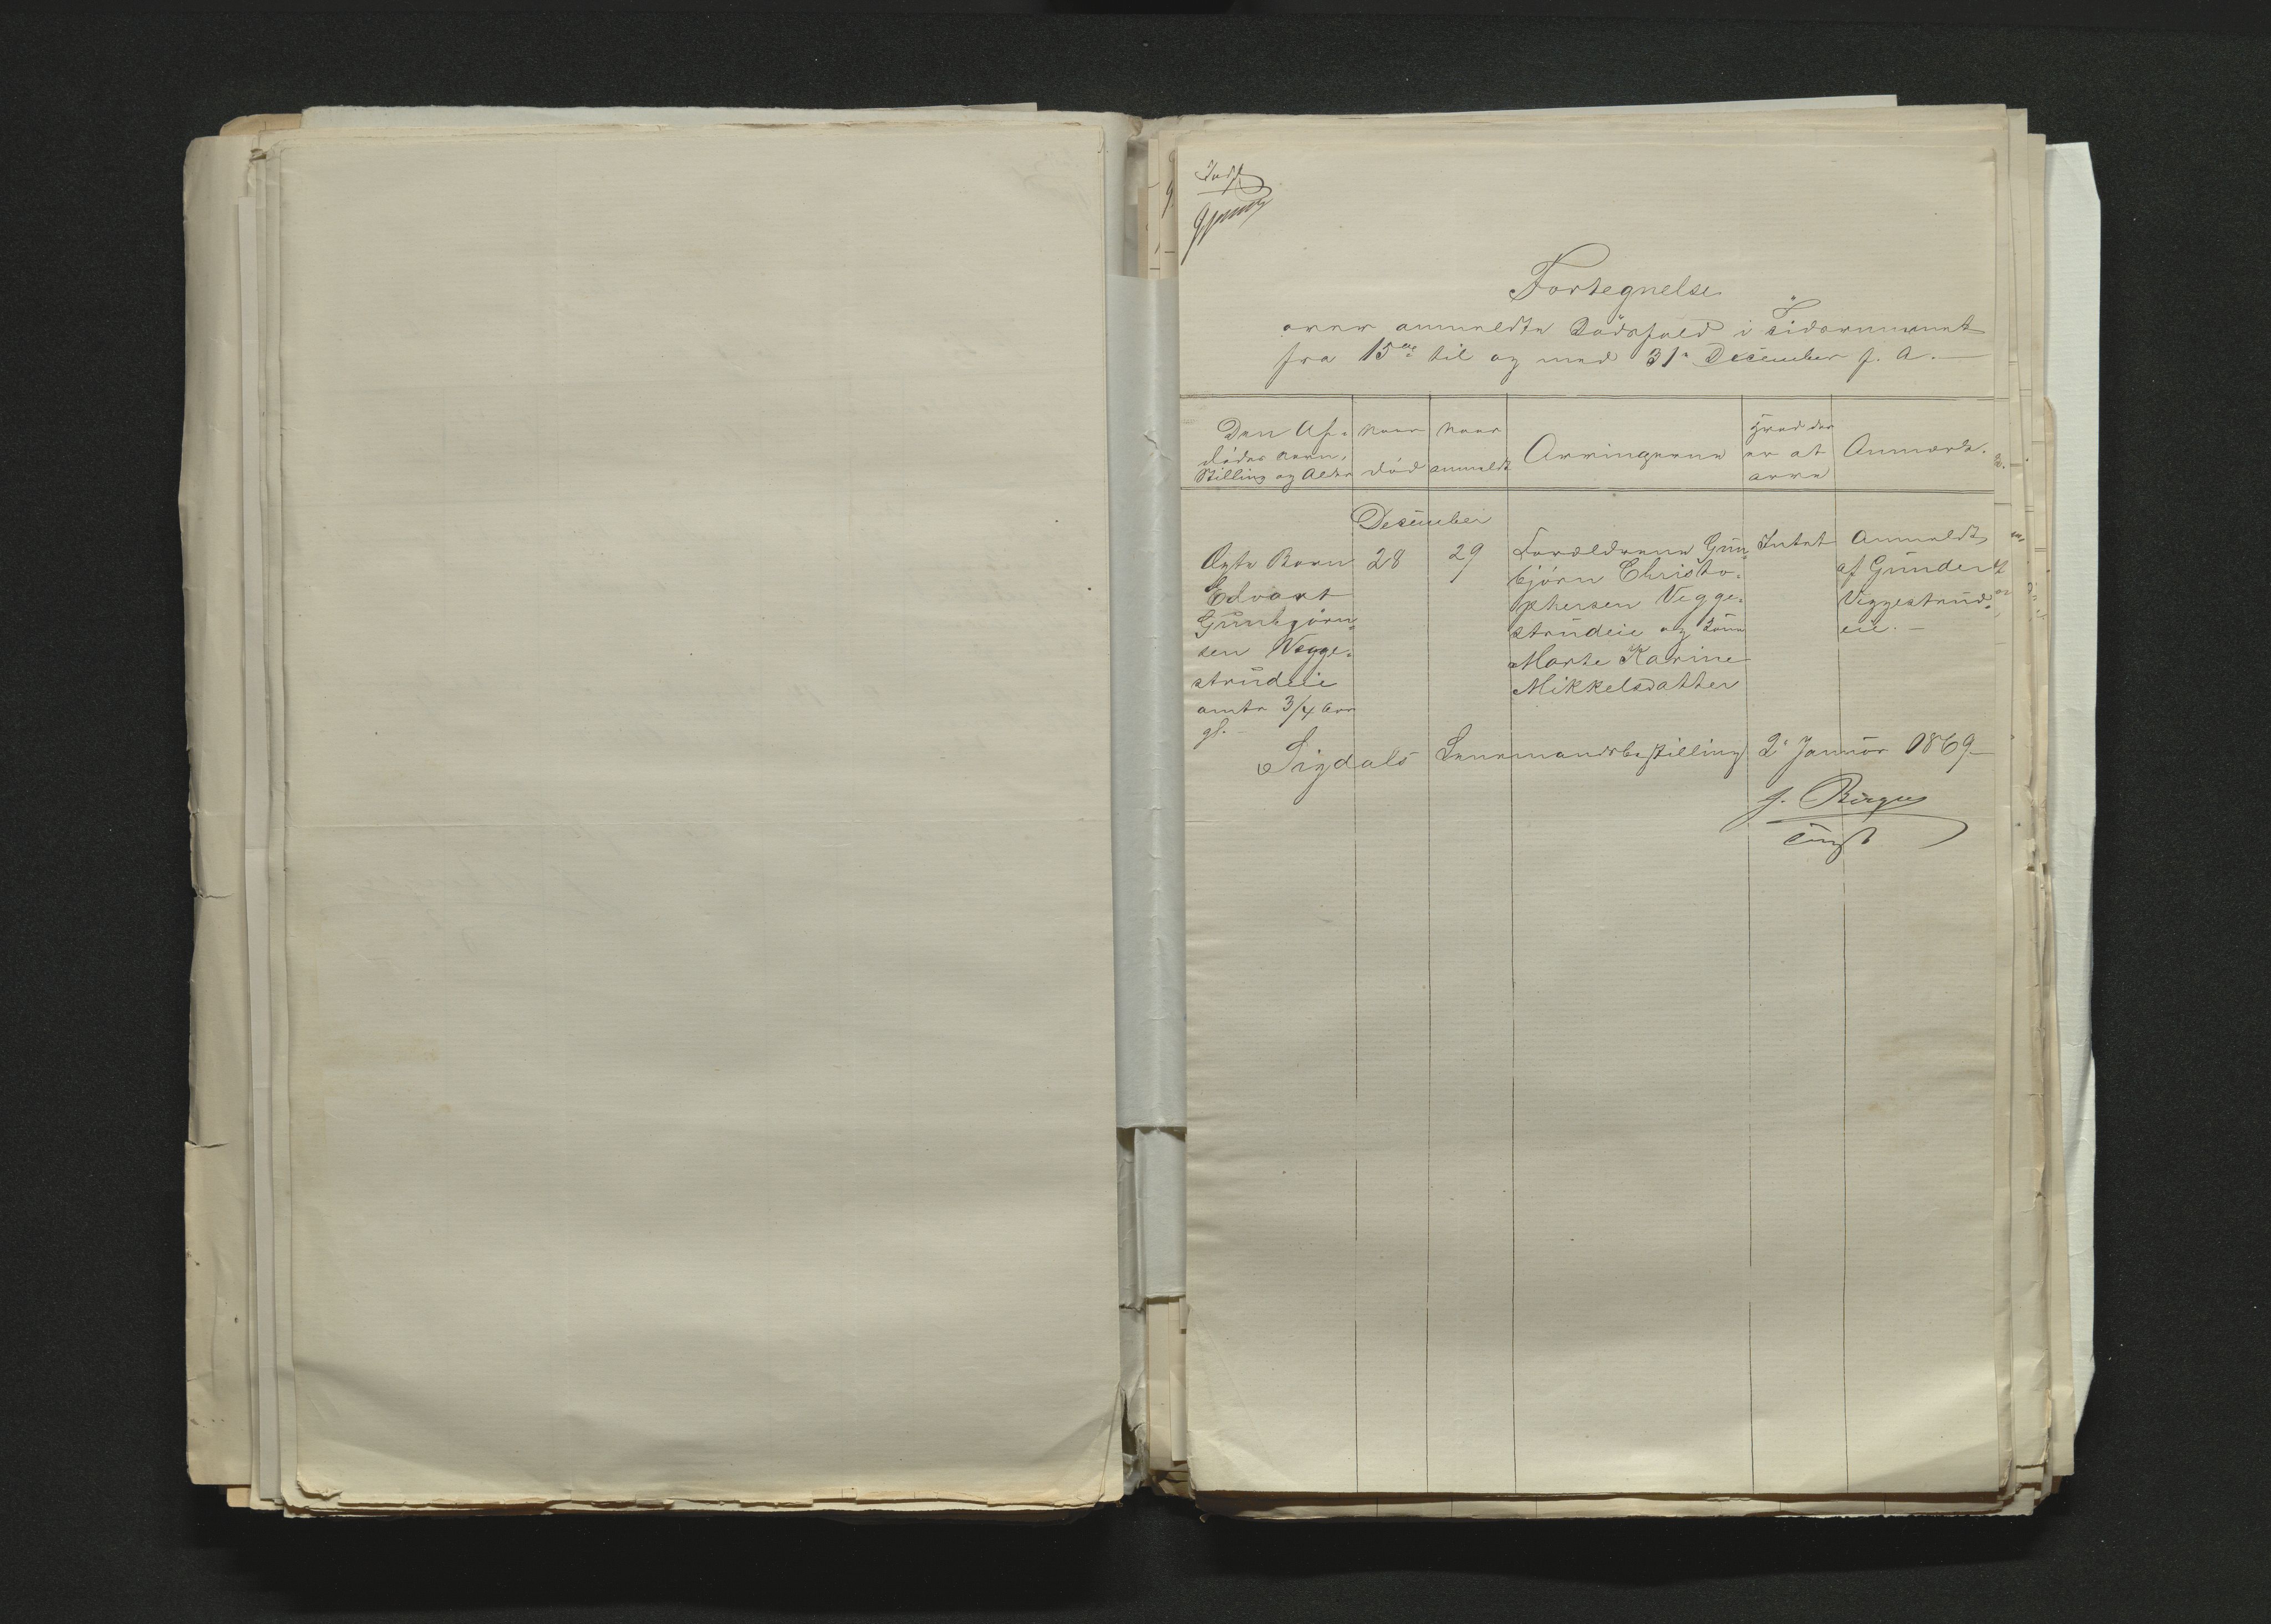 Fortegnelse
over anmeldte Dödsfald i Tidsrummet
fra 15de til og med 31. December f. A.
Den Af-
dödes Navn,
Stilling og Alder
Naar
död
Naar
anmeldt
Arvingerne
Hvad der
er at
arve
Anmærk.
December
Ægte Barn
Edvart
Gunbjörn-
sen Vegge-
strudeie
omtr 3/4 Aar
gl. -
28
29
Forældrene Gun-
björn Christo-
phersen Vegge-
strudeie og Kone
Marte Karine
Mikkelsdatter
Intet
Anmeldt
af Gunder
Veggestrud-
eie. -
Sigdals Lensmandsbestilling 2. Januar 1869